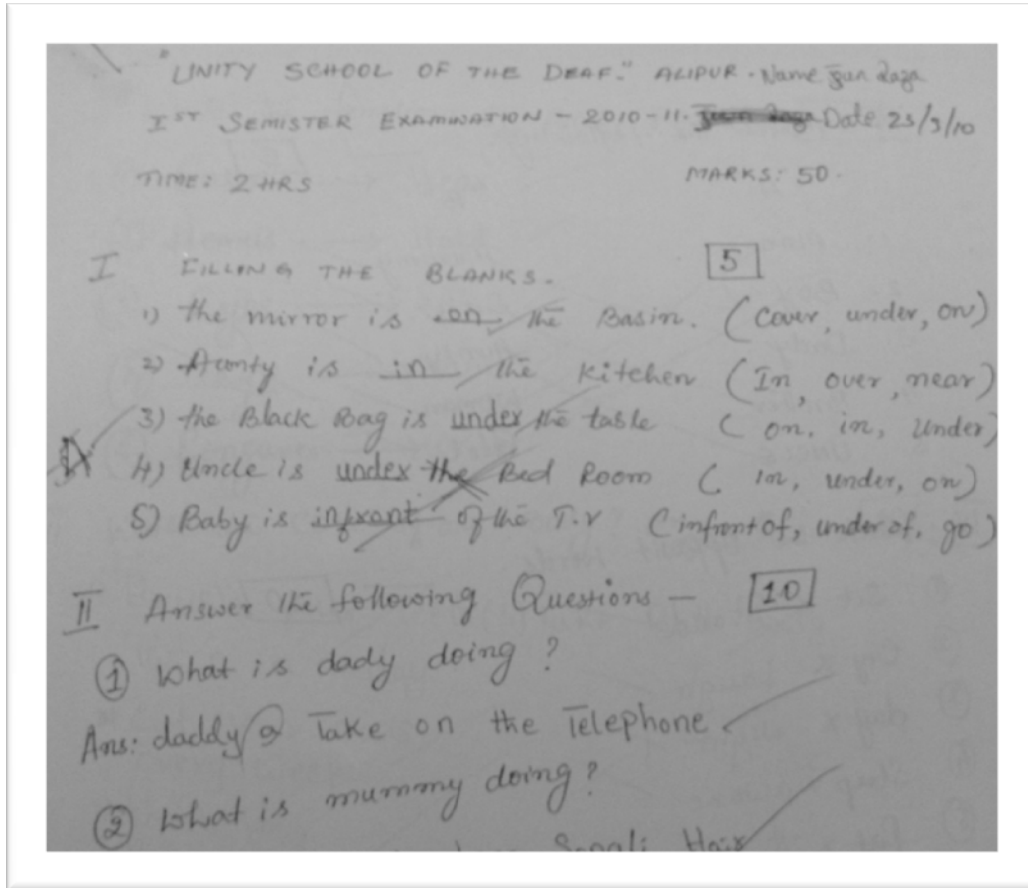 "UNITY SCHOOL OF THE DEAF." ALIPUR. Name
IST SEMISTER EXAMINATION - 2010-11. Date 25/3/10
TIME: 2 HRS MARKS: 50.
I FILLING THE BLANKS. 5
1) the mirror is on the Basin. (Cover, under, on)
2) Aunty is in the kitchen (In, over, near)
3) the Black Bag is under the table (on, in, Under)
4) Uncle is under the Bed Room (In, under, on)
5) Baby is infront of the T.V (infront of, under of, go)
II Answer the following Questions - 10
1 What is dady doing?
Ans: daddy Take on the Telephone
2 What is mummy doing?
Hair